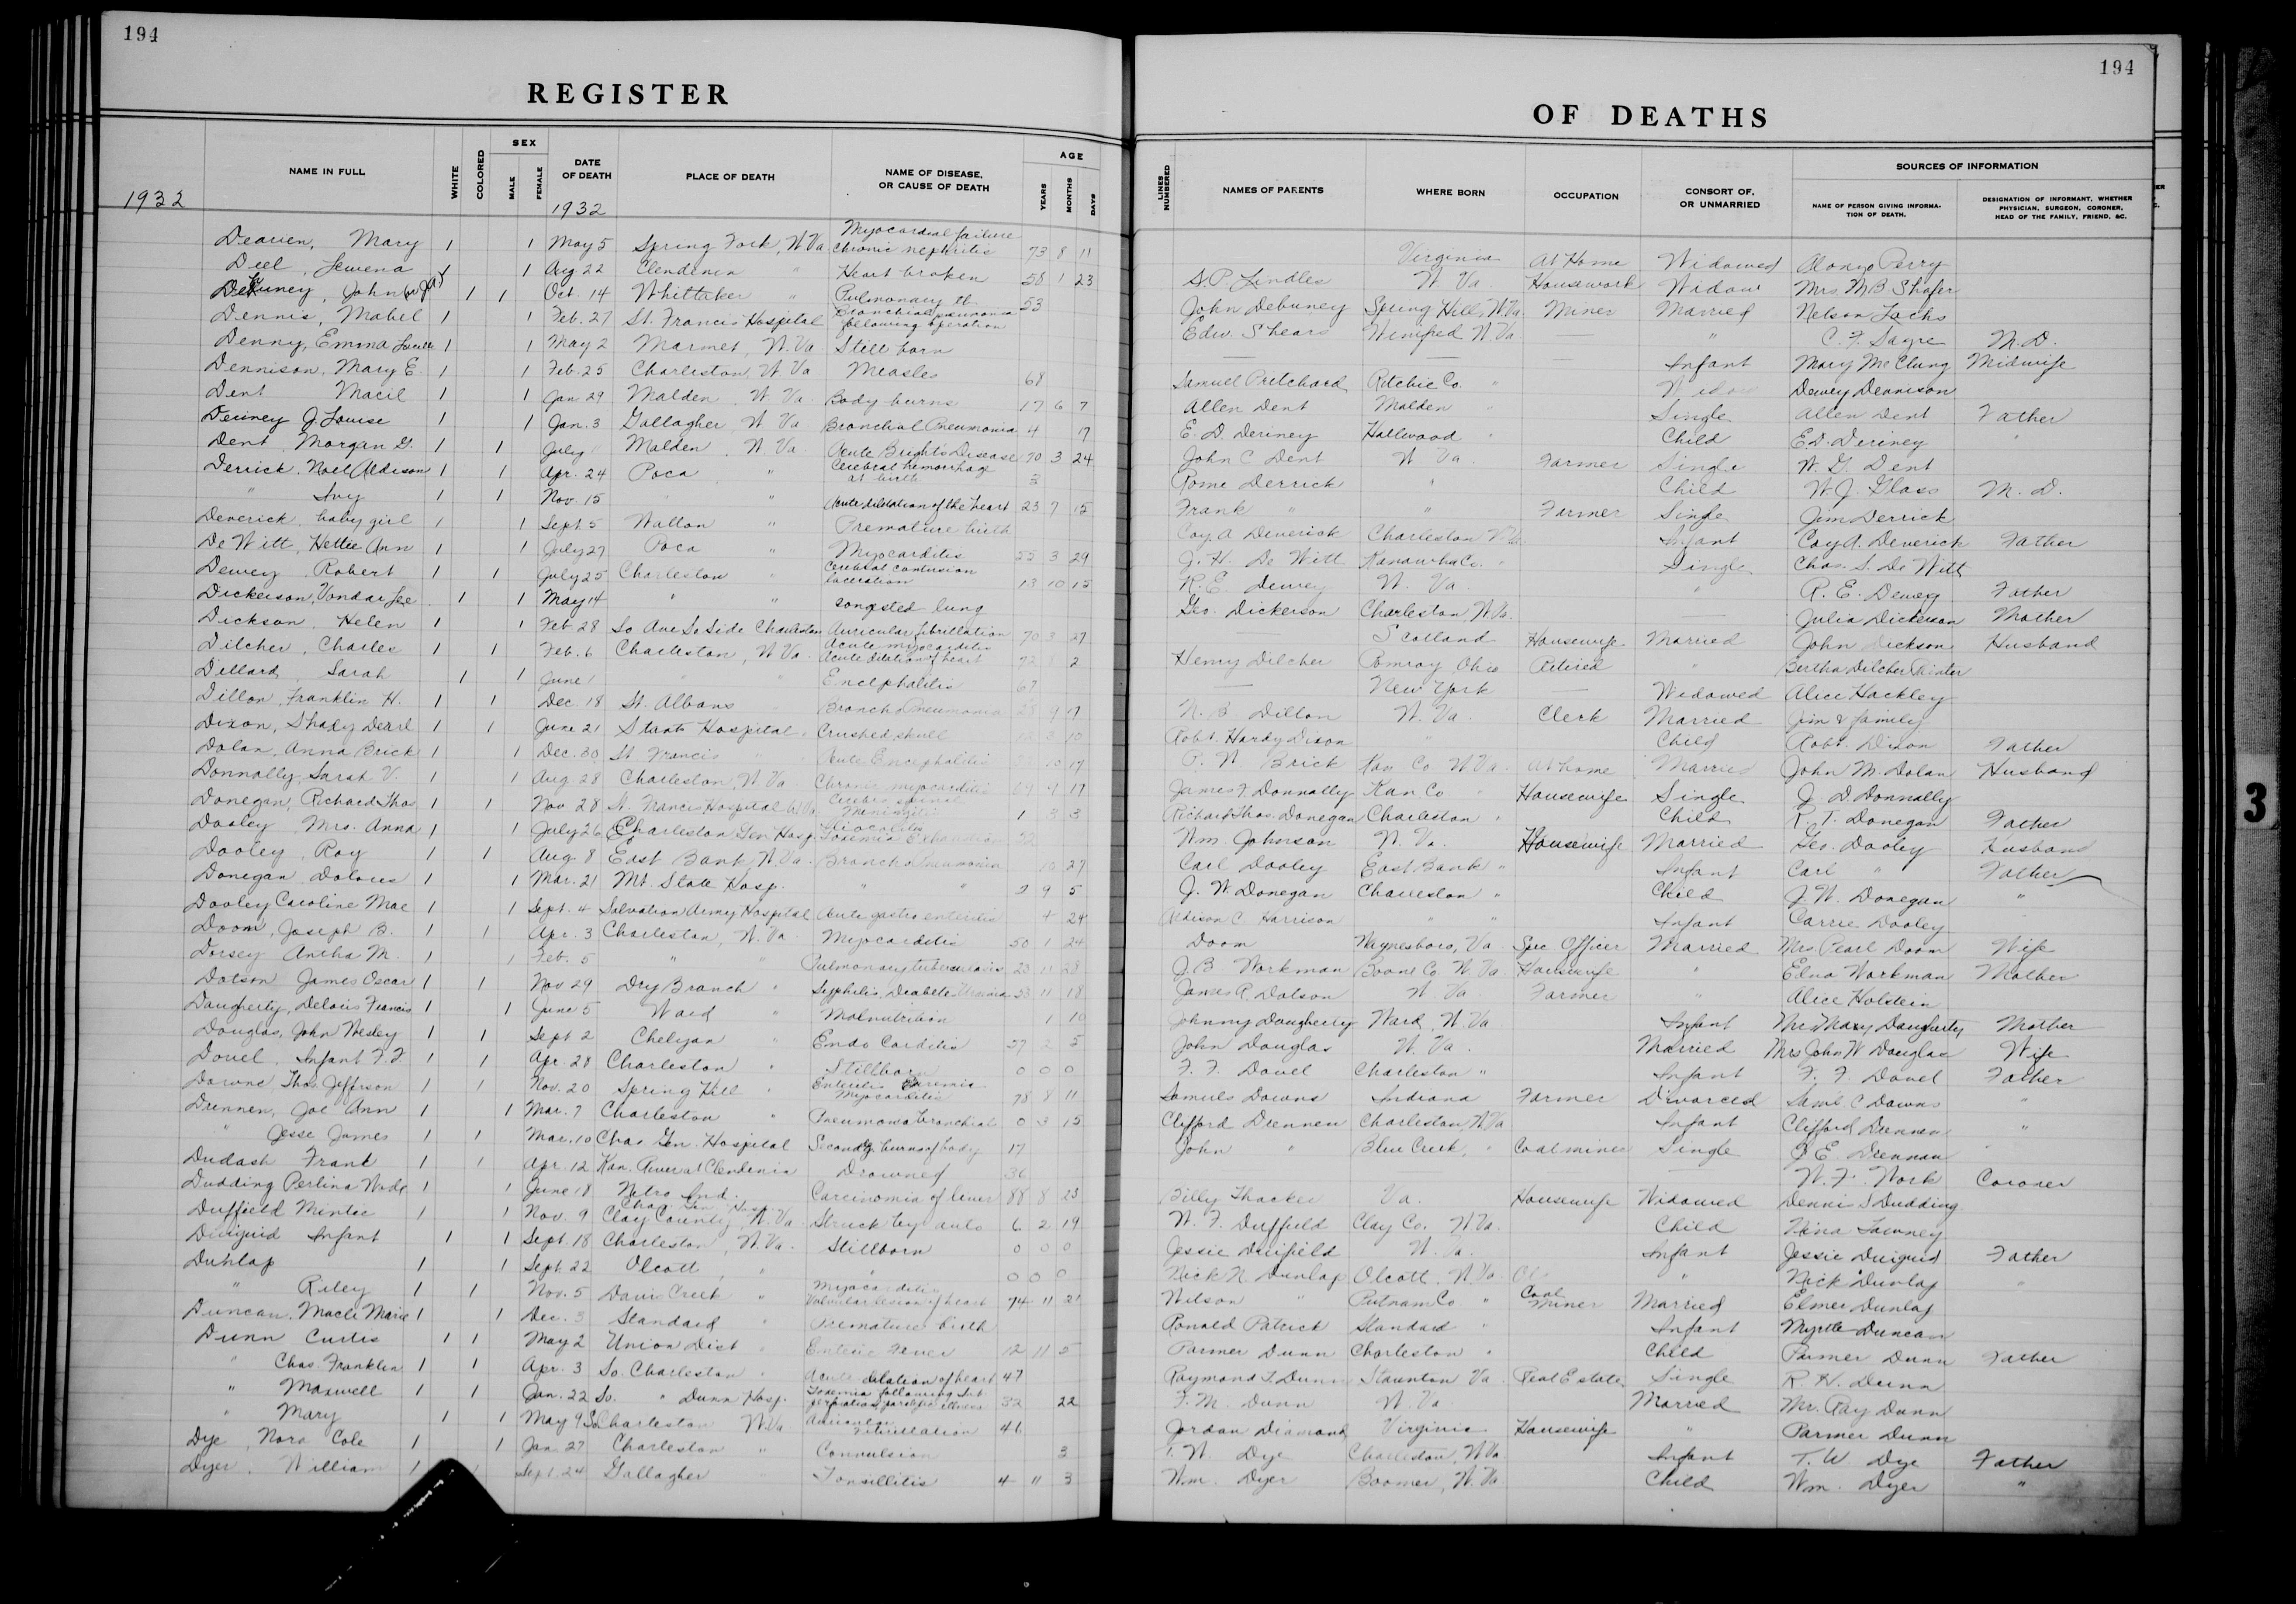 194
194
REGISTER
OF DEATHS
NAME IN FULL
WHITE
COLORED
SEX
MALE
FEMALE
DATE OF DEATH
PLACE OF DEATH
NAME OF DISEASE, OR CAUSE OF DEATH
AGE
YEARS
MONTHS
DAYS
LINES NUMBERED
NAMES OF PARENTS
WHERE BORN
OCCUPATION
CONSORT OF, OR UNMARRIED
SOURCES OF INFORMATION
NAME OF PERSON GIVING INFORMATION OF DEATH.
DESIGNATION OF INFORMANT, WHETHER PHYSICIAN, SURGEON, CORONER, HEAD OF THE FAMILY, FRIEND, &C.
1932
1932
Dearien, Mary 1 1 May 5 Spring Fork, W Va. Myocardial failure Chronic nephritis 73 8 11 Virginia At Home Widowed Alonzo Perry
Deel, 1 1 Aug 22 Clendenin " Heart broken 58 1 23 W. Va. Housework Widow Mrs. M B Shafer
John 1 1 Oct. 14 Whittaker " Pulmonary tb. 53 John Debuney Spring Hill, W. Va. Miner Married Nelson
Dennis, Mabel 1 1 Feb. 27 St. Francis Hospital Bronchial pneumonia following operation Edw. Shears Winifred W. Va. — " C. F. Sayre M. D.
Denny, Emma 1 1 May 2 Marmet, W. Va. Still born — — Infant Mary McClung Midwife
Dennison, Mary E. 1 1 Feb. 25 Charleston, W Va Measles 68 Samuel Pritchard Ritchie Co. " Widow Dewey Dennison
Dent Macil 1 1 Jan 29 Malden, W. Va. Body burns 17 6 7 Allen Dent Malden " Single Allen Dent Father
J. Louise 1 1 Jan. 3 Gallagher, W Va Bronchial Pneumonia 4 17 E. D. Deriney Hallwood " Child E. D. Deriney "
Dent, Morgan G. 1 1 July Malden, W Va Acute Bright's Disease 70 3 24 John C Dent W Va. Farmer Single W. G. Dent
Derrick, Noel Addison 1 1 Apr. 24 Poca " Cerebral hemorrhage at birth 3 Rome Derrick " Child W. J. Glass M. D.
" Ivy 1 1 Nov. 15 " " Acute dilatation of the heart 23 7 15 Frank " " Farmer Single Jim Derrick
Deverick, baby girl 1 1 Sept. 5 Walton " Premature birth Coy A Deverick Charleston W Va. Infant Coy A. Deverick Father
De Witt, Hettie Ann 1 1 July 27 Poca " Myocarditis 55 3 29 J. H. De Witt Kanawha Co. " Single Chas. S. De Witt
Dewey, Robert 1 1 July 25 Charleston " Cerebral contusion laceration 13 10 15 R. E. Dewey W. Va. " R. E. Dewey Father
Dickerson, 1 1 May 14 " " congested lung Geo. Dickerson Charleston, W. Va. Julia Dickerson Mother
Dickson, Helen 1 1 Feb 28 So Ave So Side Charleston Auricular fibrillation 70 3 27 Scotland Housewife Married John Dickson Husband
Dilcher, Charles 1 1 Feb. 6 Charleston, W Va. Acute myocarditis Acute dilation of heart 2 Henry Dilcher Pomroy, Ohio Retired " Bertha Dilcher
Dillard, Sarah 1 1 June 1 " " Encephalitis 67 — New York — Widowed Alice Hackley
Dillon, Franklin H. 1 1 Dec. 18 St. Albans " Broncho Pneumonia 9 17 Dillon W. Va. Clerk Married Jim & family
Dixon, 1 1 June 21 Staats Hospital " Crushed skull 10 Robt. Hardy Dixon " Child Robt. Dixon Father
Dolan, Anna Brick 1 1 Dec. 30 St. Francis " Acute Encephalitis 10 17 Brick Kan Co. W Va. At home Married John M. Dolan Husband
Donnally, Sarah V. 1 1 Aug. 28 Charleston, W. Va. Chronic myocarditis 69 9 17 James F. Donnally Kan Co " Housewife Single J. D. Donnally
Donegan, Richard Thos 1 1 Nov 28 St. Francis Hospital W. Va. Cerebro spinal Meningitis 1 3 3 Richard Thos. Donegan Charleston " Child R. T. Donegan Father
Dooley Mrs. Anna 1 1 July 26 Charleston Gen Hosp. Wm Johnson W. Va. Housewife Married Geo. Dooley Husband
Dooley, Roy 1 1 Aug. 8 East Bank, W. Va. Broncho Pneumonia 10 27 Carl Dooley East Bank " Infant Carl " Father
Donegan Dolores 1 1 Mar. 21 Mt. State Hosp. " " 2 9 5 J. W. Donegan Charleston " Child J. W. Donegan "
Dooley Caroline Mae 1 1 Sept. 4 Salvation Army Hospital Acute gastro enteritis 4 24 Addison C Harrison " " Infant Carrie Dooley
Doom, Joseph B. 1 1 Apr. 3 Charleston, W. Va. Myocarditis 50 1 24 Doom Waynesboro, Va. Spec Officer Married Mrs. Pearl Doom Wife
Dorsey Antha M. 1 1 Feb. 5 " " Pulmonary tuberculosis 23 11 28 J. B. Workman Boone Co. W Va. Housewife " Edna Workman Mother
Dotson James Oscar 1 1 Nov 29 Dry Branch " Syphilis, Diabetes Uremia 53 11 18 James R. Dotson W. Va. Farmer " Alice Holstein
Daugherty, Delois Francis 1 1 June 5 Ward " Malnutrition 1 10 Johnny Daugherty Ward, W. Va. Infant Mrs. Mary Daugherty Mother
Douglas, John Wesley 1 1 Sept 2 Chelyan " Endo Carditis 57 2 5 John Douglas W. Va. Married Mrs John W Douglas Wife
Dovel, Infant F. F 1 1 Apr. 28 Charleston " Stillborn 0 0 0 F. F. Dovel Charleston " Infant F. F. Dovel Father
Downs Thos. Jefferson 1 1 Nov. 20 Spring Hill " Enteritis Uremia Myocarditis 78 8 11 Samuels Downs Indiana Farmer Divorced Saml C Downs "
Drennen, Joe Ann 1 1 Mar. 7 Charleston " Pneumonia bronchial 0 3 15 Clifford Drennen Charleston, W Va Infant Clifford Drennen "
" Jesse James 1 1 Mar. 10 Chas Gen. Hospital Secondg burns of body 17 John " Blue Creek, " Coal miner Single J E. Drennan "
Dudash Frank 1 1 Apr. 12 Kan. River at Clendenin Drowned 36 W. F. Work Coroner
Dudding Perlina Wade 1 1 June 18 Nitro Ind. Carcinomia of liver 88 8 23 Billy Thacker Va. Housewife Widowed Dennis S Dudding
Duffield Mintie 1 1 Nov. 9 Chas Gen Hosp. Clay County, W. Va. Struck by auto 6 2 19 W. F. Duffield Clay Co. W Va. Child Nina Tawney
Duiguid Infant 1 1 Sept. 18 Charleston, W. Va. Stillborn 0 0 0 Jessie W. Va. Infant Jessie Duiguid Father
Dunlap 1 1 Sept. 22 Olcott " " 0 0 0 Nick N. Dunlap Olcott, W. Va. " Nick Dunlap "
" Riley 1 1 Nov. 5 Davis Creek " Myocarditis Valvular lesion of heart 74 11 21 Wilson " Putnam Co. " Coal Miner Married Elmer Dunlap
Duncan, Macle Marie 1 1 Dec. 3 Standard " Premature birth Ronald Patrick Standard " Infant Myrtle Duncan
Dunn Curtis 1 1 May 2 Union Dist " Enteric Fever 12 11 5 Parmer Dunn Charleston " Child Parmer Dunn Father
" Chas. Franklin 1 1 Apr. 3 So. Charleston " Acute dilation of heart 47 Raymond L. Dunn Staunton Va. Real Estate Single R. H. Dunn
" Maxwell 1 1 Jan. 22 So. " Dunn Hosp. Toxemia following 32 22 F. M. Dunn W. Va. Married Mr. Ray Dunn
" Mary 1 1 May 9 So Charleston W. Va Auricular Fibrillation 46 Jordan Diamond Virginia Housewife " Parmer Dunn
Dye, Nora Cole 1 1 Jan. 27 Charleston " Convulsion 3 T. W. Dye Charleston, W Va. Infant T. W. Dye Father
Dyer, William 1 1 Sept. 24 Gallagher " Tonsillitis 4 11 3 Wm. Dyer Boomer, W. Va. Child Wm. Dyer "
3